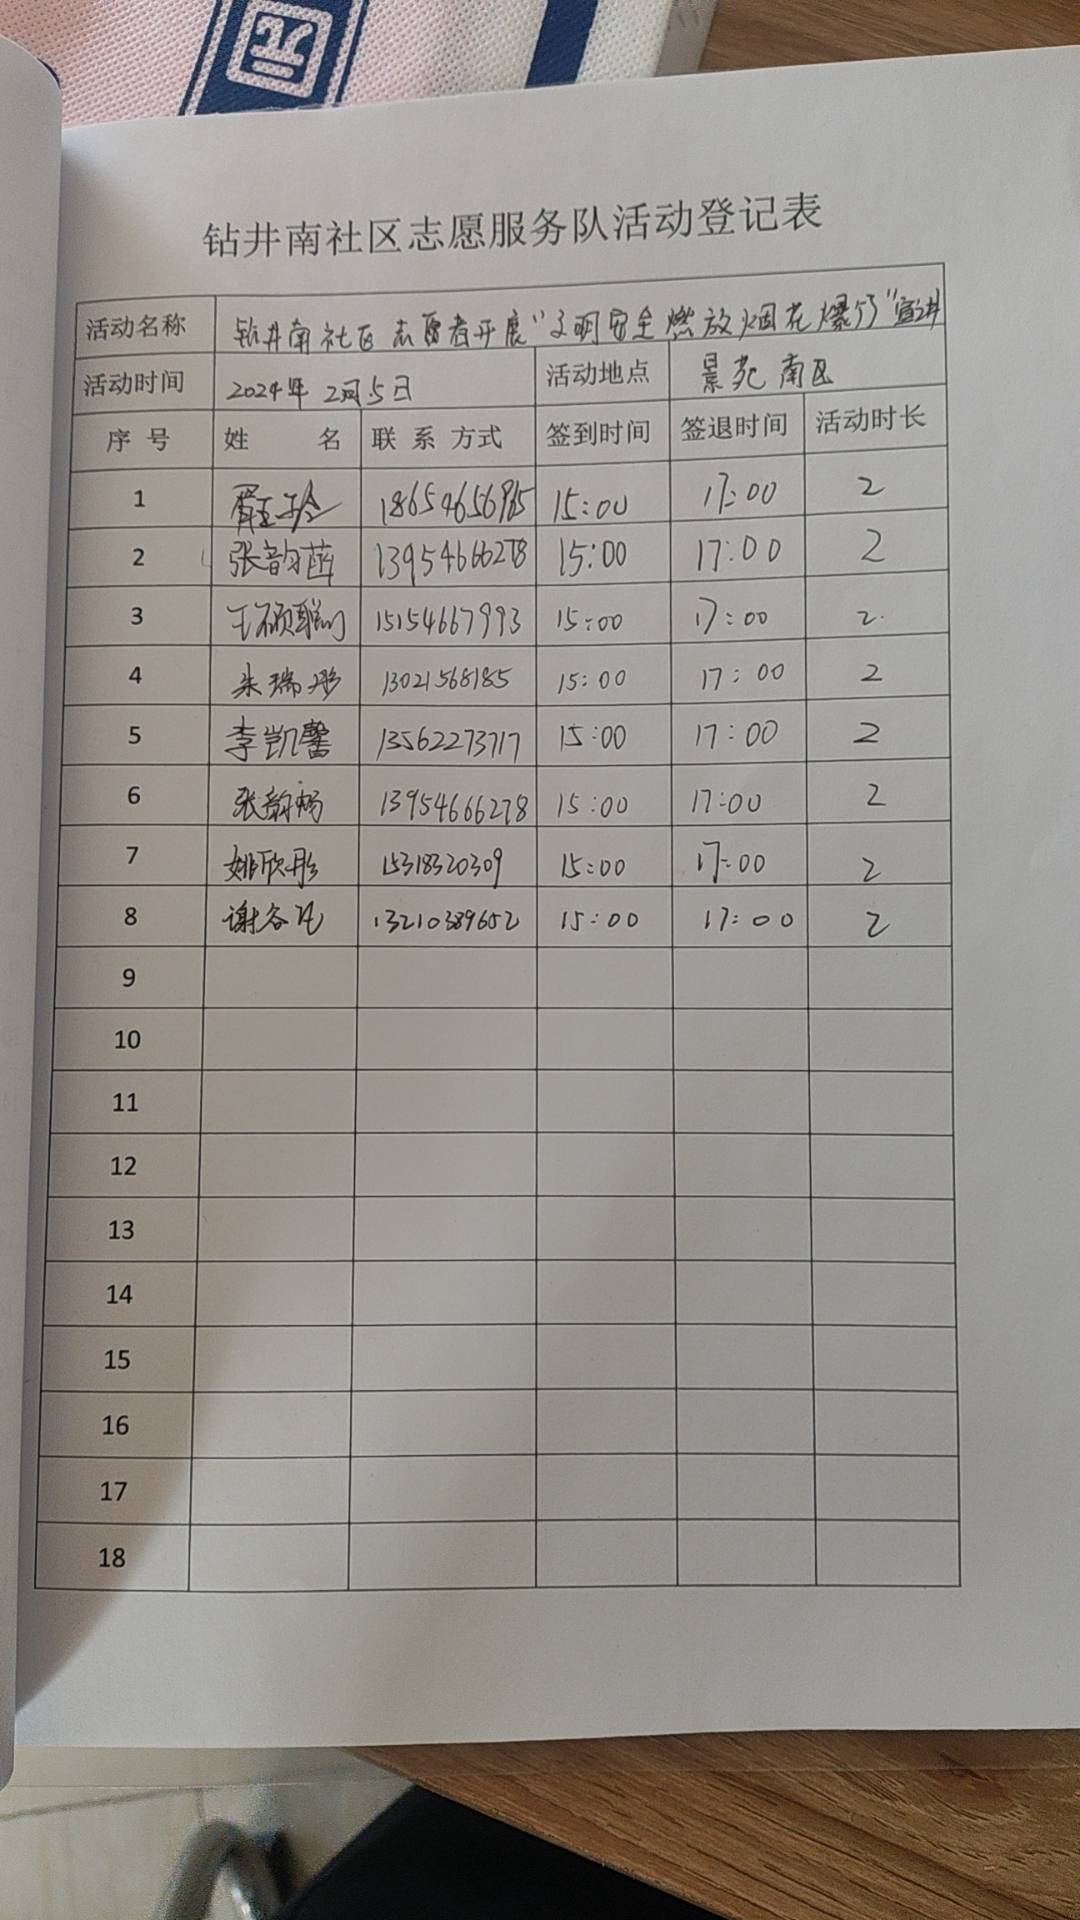 钻井南社区志愿服务队活动登记表
活动名称 钻井南社区志愿者开展“文明安全燃放烟花爆竹”宣讲
活动时间 2024年2月5日 活动地点 景苑南区
序号 姓名 联系方式 签到时间 签退时间 活动时长
1 18654656985 15:00 17:00 2
2 张韵菡 13954666278 15:00 17:00 2
3 王硕聪 15154667993 15:00 17:00 2
4 朱瑞彤 13021568185 15:00 17:00 2
5 李凯馨 13562273717 15:00 17:00 2
6 张韵畅 13954666278 15:00 17:00 2
7 姚欣彤 15318320309 15:00 17:00 2
8 谢谷 13210389652 15:00 17:00 2
9
10
11
12
13
14
15
16
17
18